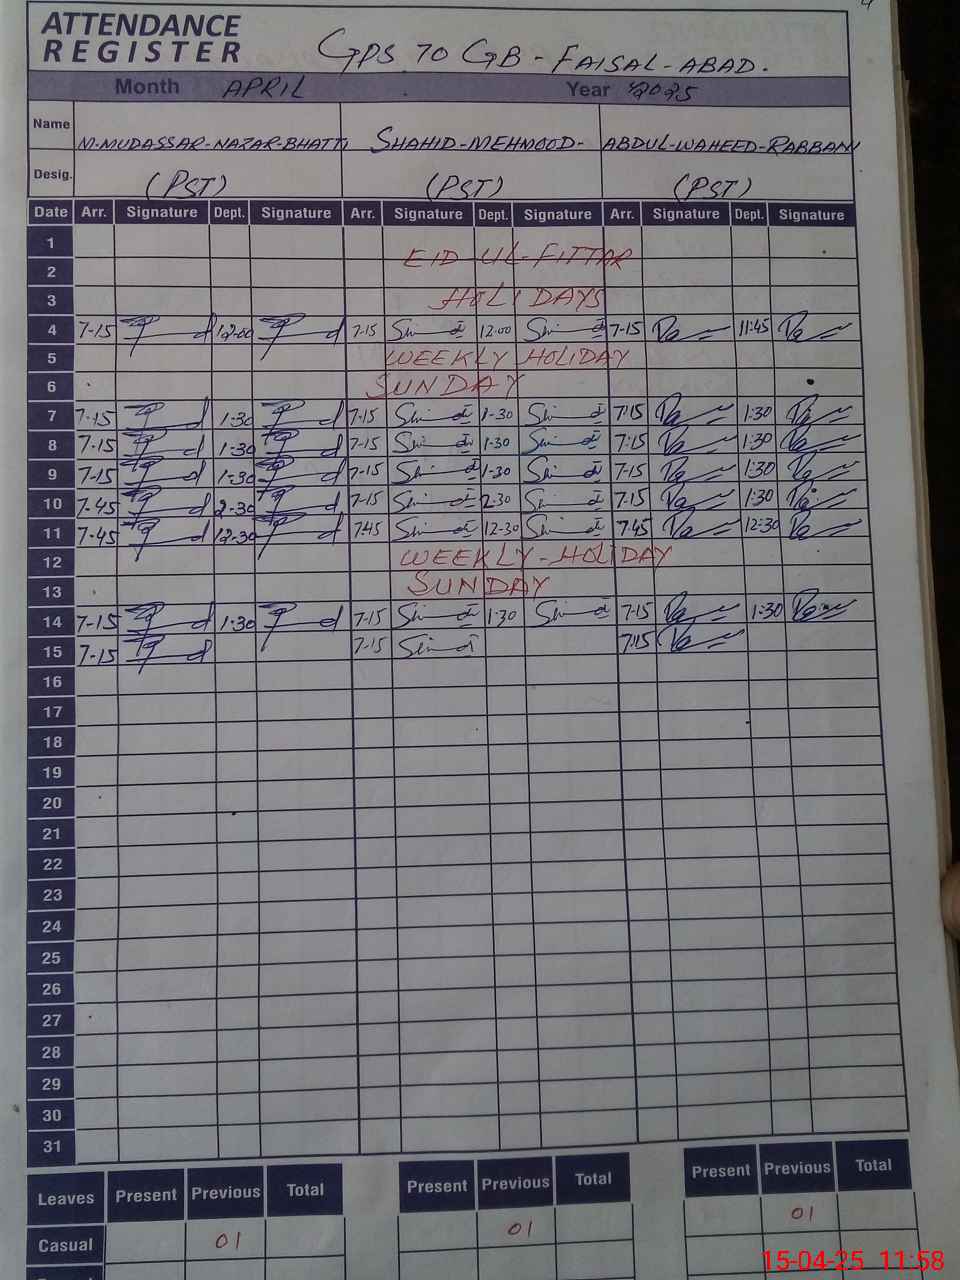 ATTENDANCE
REGISTER GPS 70 GB - FAISAL-ABAD.
Month APRIL Year 2025
Name M-MUDASSAR-NAZAR-BHATTI SHAHID-MEHMOOD- ABDUL-WAHEED-RABBANI
Desig. (PST) (PST) (PST)
Date Arr. Signature Dept. Signature Arr. Signature Dept. Signature Arr. Signature Dept. Signature
1
EID-UL-FITTAR
2
3 HOLIDAYS
4 7-15 12-00 7-15 12-00 7-15 11:45
5 WEEKLY HOLIDAY
6 SUNDAY
7 7-15 1-30 7-15 1-30 7:15 1:30
8 7-15 1-30 7-15 1-30 7:15 1:30
9 7-15 1-30 7-15 1-30 7-15 1:30
10 7-45 2-30 7-15 2-30 7:15 1:30
11 7-45 12-30 7:45 12-30 7:45 12:30
12 WEEKLY-HOLIDAY
13 SUNDAY
14 7-15 1-30 7-15 1-30 7-15 1-30
15 7-15 7-15 7:15
16
17
18
19
20
21
22
23
24
25
26
27
28
29
30
31
Leaves Present Previous Total Present Previous Total Present Previous Total
Casual 01 01 01
15-04-25 11:58